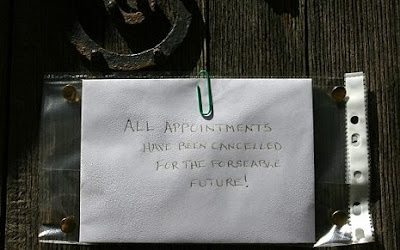 ALL APPOINTMENTS
HAVE BEEN CANCELLED
FOR THE FORSEABLE
FUTURE!